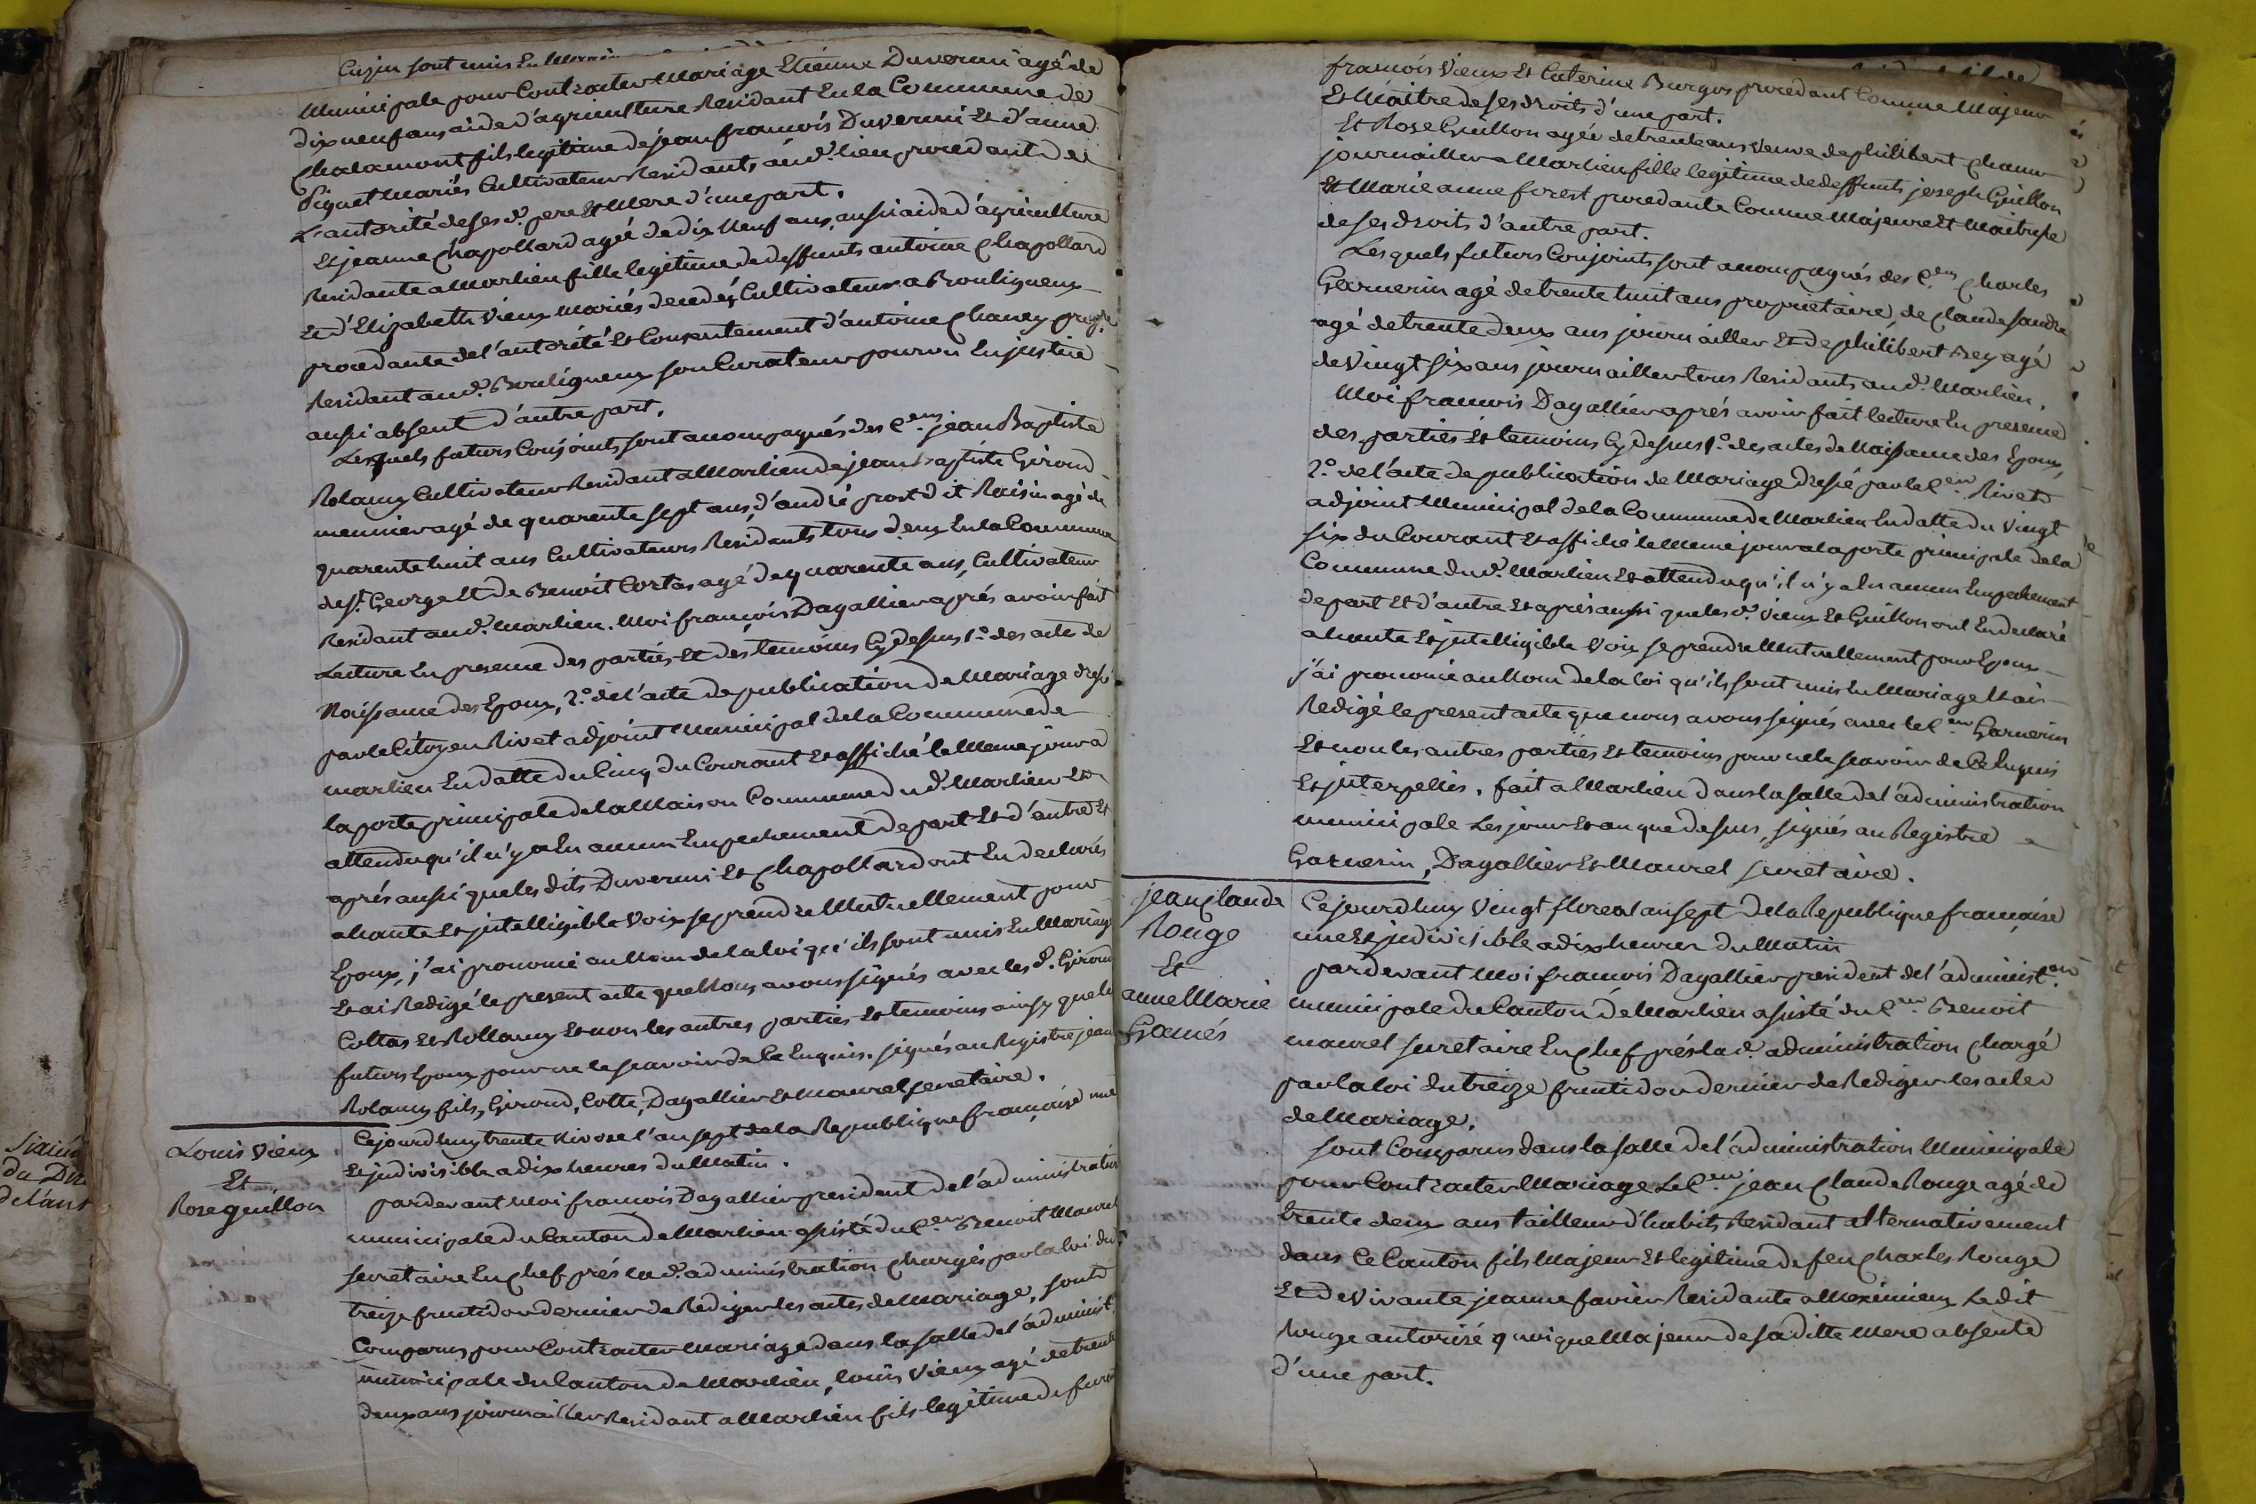 Cuzin sont unis En
Municipale pour Contracter Mariage Etienne Duvernei agé de
dix neuf ans aide d'agriculture Residant En la Commune de
Chalamont fils legitime de jean francois Duvernei Et d'anne
Piquet Mariés Cultivateurs Residants au d. lieu procedant de
L'autorité de ses d. pere Et Mere d'une part.
Et jeanne Chapollard agée de dix Neuf ans, aussi aide d'agriculture
Residante a Marlieu fille legitime de deffunts antoine Chapollard
Et d'Elizabeth Vieux Mariés decedés Cultivateurs a Bouligneux
procedante de l'autorité Et Consentement d'antoine Chanex
Residant au d. Bouligneux son Curateur pourvu En justice
aussi absent d'autre part.
Lesquels futurs Conjoints sont acompagnés des C.ens jean Baptiste
Rolamy Cultivateur Residant a Marlieu de jean Baptiste Giroud
meunier agé de quarente sept ans, d'andré prost dit Raisin agé de
quarente huit ans Cultivateurs Residants tous deux En la Commune
de s.t George Et de Benoit Cortas agé de quarente ans, Cultivateur
Residant au d. Marlieu. Moi françois Dagallier aprés avoir fait
Lecture En presence des parties Et des temoins Cy dessus 1.o des acte de
Naissance des Epoux, 2.o de l'acte de publication de Mariage dressé
par le Citoyen Rivet adjoint Municipal de la Commune de
marlieu En datte du Cinq du Courant Et affiché le Meme jour a
la porte principale de la Maison Commune du d. Marlieu Et
attendu qu'il n'y a Eu aucun Empechement de part Et d'autre Et
aprés aussi que les dits Duvernei Et Chapollard ont En declarés
a haute Et jntelligible Voix se prendre Mutuellement pour
Epoux, j'ai prononcé au Nom de la loi qu'ils sont unis En Mariage
Et ai Redigé le present acte que Nous avons signés avec les d. Giroud
Cottas Et Rollamy Et non les autres parties Et temoins ainsy que les
futurs Epoux pour ne le scavoir de Ce Enquis. signés au Registre jean
Rolamy fils, Giroud, Cotte, Dagallier Et Maurel secretaire.
Louis Vieux
Et
Rose guillon
Cejourdhuy trente Nivose l'an sept de la Republique française une
Et jndivisible a dix heures du Matin.
pardevant Moi françois Dagallier president de l'administration
municipale du Canton de Marlieu assisté du C.en Benoit Maurel
secretaire En Chef prés la d. administration Chargés par la loi du
treize fructidor dernier de Rediger les actes de Mariage, sont
Comparus pour Contracter Mariage dans la salle de l'administ
municipale du Canton de Marlieu, louis Vieux agé de trente
deux ans journailler Residant a Marlieu fils legitime de
Sixiém
du
de l'an
francois Vieux Et Caterine Burgos procedant Comme Majeur
Et Maitre de ses droits d'une part.
Et Rose Guillon agée de trente ans Veuve de philibert Chanu
journailler a Marlieu fille legitime de deffunts joseph Guillon
Et Marie anne forest procedante Comme Majeure Et Maitresse
de ses droits d'autre part.
Lesquels futurs Conjoints sont acompagnés des C.ens Charles
Garnerin agé de trente huit ans proprietaire, de Claude sandre
agé de trente deux ans journailler Et de philibert Rey agé
de Vingt six ans journailler tous Residants au d. Marlieu.
Moi francois Dagallier aprés avoir fait lecture En presence
des parties Et temoins Cy dessus 1.o des actes de Naissance des Epoux,
2.o de l'acte de publication de Mariage dressé par le C.en Rivet
adjoint Municipal de la Commune de Marlieu En datte du Vingt
six du Courant Et affiché le Meme jour a la porte principale de la
Commune du d. Marlieu Et attendu qu'il n'y a Eu aucun Empechement
de part Et d'autre Et aprés aussi que les d. Vieux Et Guillon ont En declaré
a haute Et jntelligible Voix se prendre Mutuellement pour Epoux
j'ai prononcé au Nom de la loi qu'ils sont unis En Mariage Et ai
Redigé le present acte que nous avons signés avec le C.en Garnerin
Et non les autres parties Et temoins pour ne le scavoir de Ce Enquis
Et jnterpellés, fait a Marlieu dans la salle de l'administration
municipale Les jour Et an que dessus, signés au Registre
Garnerin, Dagallier Et Maurel secretaire.
jean Claude
Rouge
Et
anne Marie
Gamés
Cejourdhuy Vingt floreal an sept de la Republique française
une Et jndivisible a dix heures du Matin
pardevant Moi francois Dagallier president de l'administ.on
municipale du Canton de Marlieu assisté du C.en Benoit
maurel secretaire En Chef prés la d. administration Chargé
par la loi du treize fructidor dernier de Rediger les actes
de Mariage.
sont Comparus dans la salle de l'administration Municipale
pour Contracter Mariage Le C.en jean Claude Rouge agé de
trente deux ans tailleur d'habits Residant alternativement
dans Ce Canton fils Majeur Et legitime de feu Charles Rouge
Et de Vivante jeanne favier Residante a Meximieux Le dit
Rouge autorisé quoique Majeur de sa ditte Mere absente
d'une part.